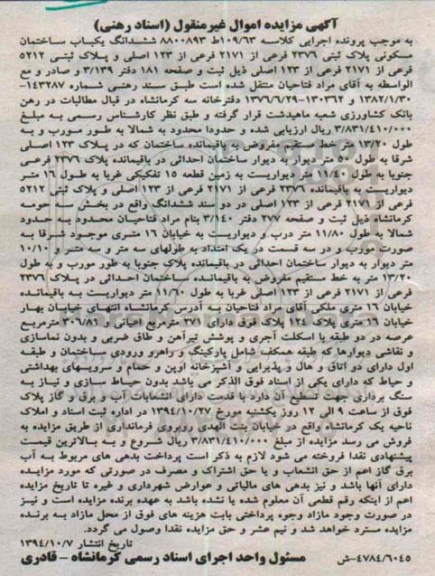 آگهی مزایده اموال غیرمنقول (اسناد رهنی)
به موجب پرونده اجرایی کلاسه ۱۰۹/۶۳ط ۸۸۰۰۸۹۳ ششدانگ یکباب ساختمان
مسکونی پلاک ثبتی ۲۳۷۶ فرعی از ۲۱۷۱ فرعی از ۱۲۳ اصلی و پلاک ثبتی ۵۲۱۲
فرعی از ۲۱۷۱ فرعی از ۱۲۳ اصلی ذیل ثبت و صفحه ۱۸۱ دفتر ۳/۱۳۹ و صادر و مع
الواسطه به آقای مراد فتاحیان منتقل شده است طبق سند رهنی شماره ۱۴۳۲۸۷-
۱۳۸۲/۱/۳۰ و ۱۳۰۳۶۲-۱۳۷۶/۶/۲۹ دفترخانه سه کرمانشاه در قبال مطالبات در رهن
بانک کشاورزی شعبه ماهیدشت قرار گرفته و طبق نظر کارشناس رسمی به مبلغ
۳/۸۳۱/۴۱۰/۰۰۰ ریال ارزیابی شده و حدودا محدود به شمالا به طور مورب و به
طول ۱۳/۲۰ متر خط مستقیم مفروض به باقیمانده ساختمان که در پلاک ۱۲۳ اصلی
شرقا به طول ۵۰ متر دیوار به دیوار ساختمان احداثی در باقیمانده پلاک ۲۳۷۶ فرعی
جنوبا به طول ۱۱/۴۰ متر دیواریست به زمین قطعه ۱۵ تفکیکی غربا به طول ۱۶ متر
دیواریست به باقیمانده ۲۳۷۶ فرعی از ۲۱۷۱ فرعی از ۱۲۳ اصلی و پلاک ثبتی ۵۲۱۲
فرعی از ۲۱۷۱ فرعی از ۱۲۳ اصلی در دو سند ششدانگ واقع در بخش سه حومه
کرمانشاه ذیل ثبت و صفحه ۲۷۷ دفتر ۳/۱۴۰ بنام مراد فتاحیان محدود به حدود
شمالا به طول ۱۱/۸۰ متر درب و دیواریست به خیابان ۱۶ متری موجود شرقا به
صورت مورب و در سه قسمت در یک امتداد به طولهای سه متر و سه متر و ۱۰/۱۰
متر دیوار به دیوار ساختمان احداثی در باقیمانده پلاک جنوبا به طور مورب و به طول
۱۳/۲۰ متر به خط مستقیم مفروض به باقیمانده ساختمان احداثی در پلاک ۲۳۷۶
فرعی از ۲۱۷۱ فرعی از ۱۲۳ اصلی غربا به طول ۱۱/۶۰ متر دیواریست به باقیمانده
خیابان ۱۶ متری ملکی آقای مراد فتاحیان به آدرس کرمانشاه انتهای خیابان بهار
خیابان ۱۶ متری پلاک ۱۲۴ پلاک فوق دارای ۲۷۱ مترمربع اعیانی و ۳۰۶/۸۱ مترمربع
عرصه در دو طبقه با اسکلت آجری و پوشش تیرآهن و طاق ضربی و بدون نماسازی
و نقاشی دیوارها که طبقه همکف شامل پارکینگ و راهرو ورودی ساختمان و طبقه
اول دارای دو اتاق و هال و پذیرایی و آشپزخانه اوپن و حمام و سرویسهای بهداشتی
و حیاط که دارای یکی از اسناد فوق الذکر می باشد بدون حیاط سازی و نیاز به
سنگ برداری جهت تسطیح آن دارد با قدمت دارای انشعابات آب و برق و گاز پلاک
فوق از ساعت ۹ الی ۱۲ روز یکشنبه مورخ ۱۳۹۴/۱۰/۲۷ در اداره ثبت اسناد و املاک
ناحیه یک کرمانشاه واقع در خیابان بنت الهدی روبروی فرمانداری از طریق مزایده به
فروش می رسد مزایده از مبلغ ۳/۸۳۱/۴۱۰/۰۰۰ ریال شروع و به بالاترین قیمت
پیشنهادی نقدا فروخته می شود لازم به ذکر است پرداخت بدهی های مربوط به آب
برق گاز اعم از حق انشعاب و یا حق اشتراک و مصرف در صورتی که مورد مزایده
دارای آنها باشد و نیز بدهی های مالیاتی و عوارض شهرداری و غیره تا تاریخ مزایده
اعم از اینکه رقم قطعی آن معلوم شده یا نشده باشد به عهده برنده مزایده است و نیز
در صورت وجود مازاد وجوه پرداختی بابت هزینه های فوق از محل مازاد به برنده
مزایده مسترد خواهد شد و نیم عشر و حق مزایده نقدا وصول می گردد.
تاریخ انتشار ۱۳۹۴/۱۰/۷
۴۷۸۴/۶۰۴۵-ش مسئول واحد اجرای اسناد رسمی کرمانشاه - قادری